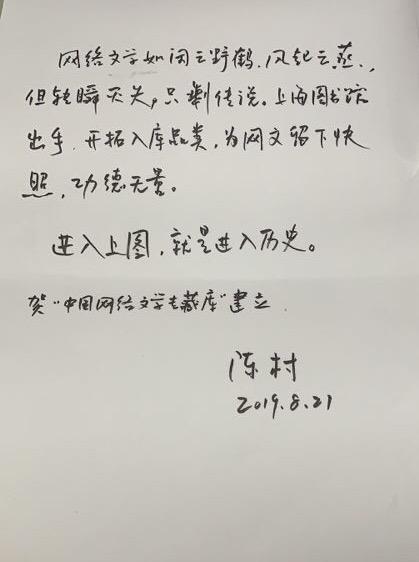 网络文学如闲云野鹤，风起云蒸，
但转瞬不失，只剩传说。上海图书馆
出手，开拓入库品类，为网文留下快
照，功德无量。
进入上图，就是进入历史。
贺“中国网络文学专藏库”建立
陈村
2019.8.21